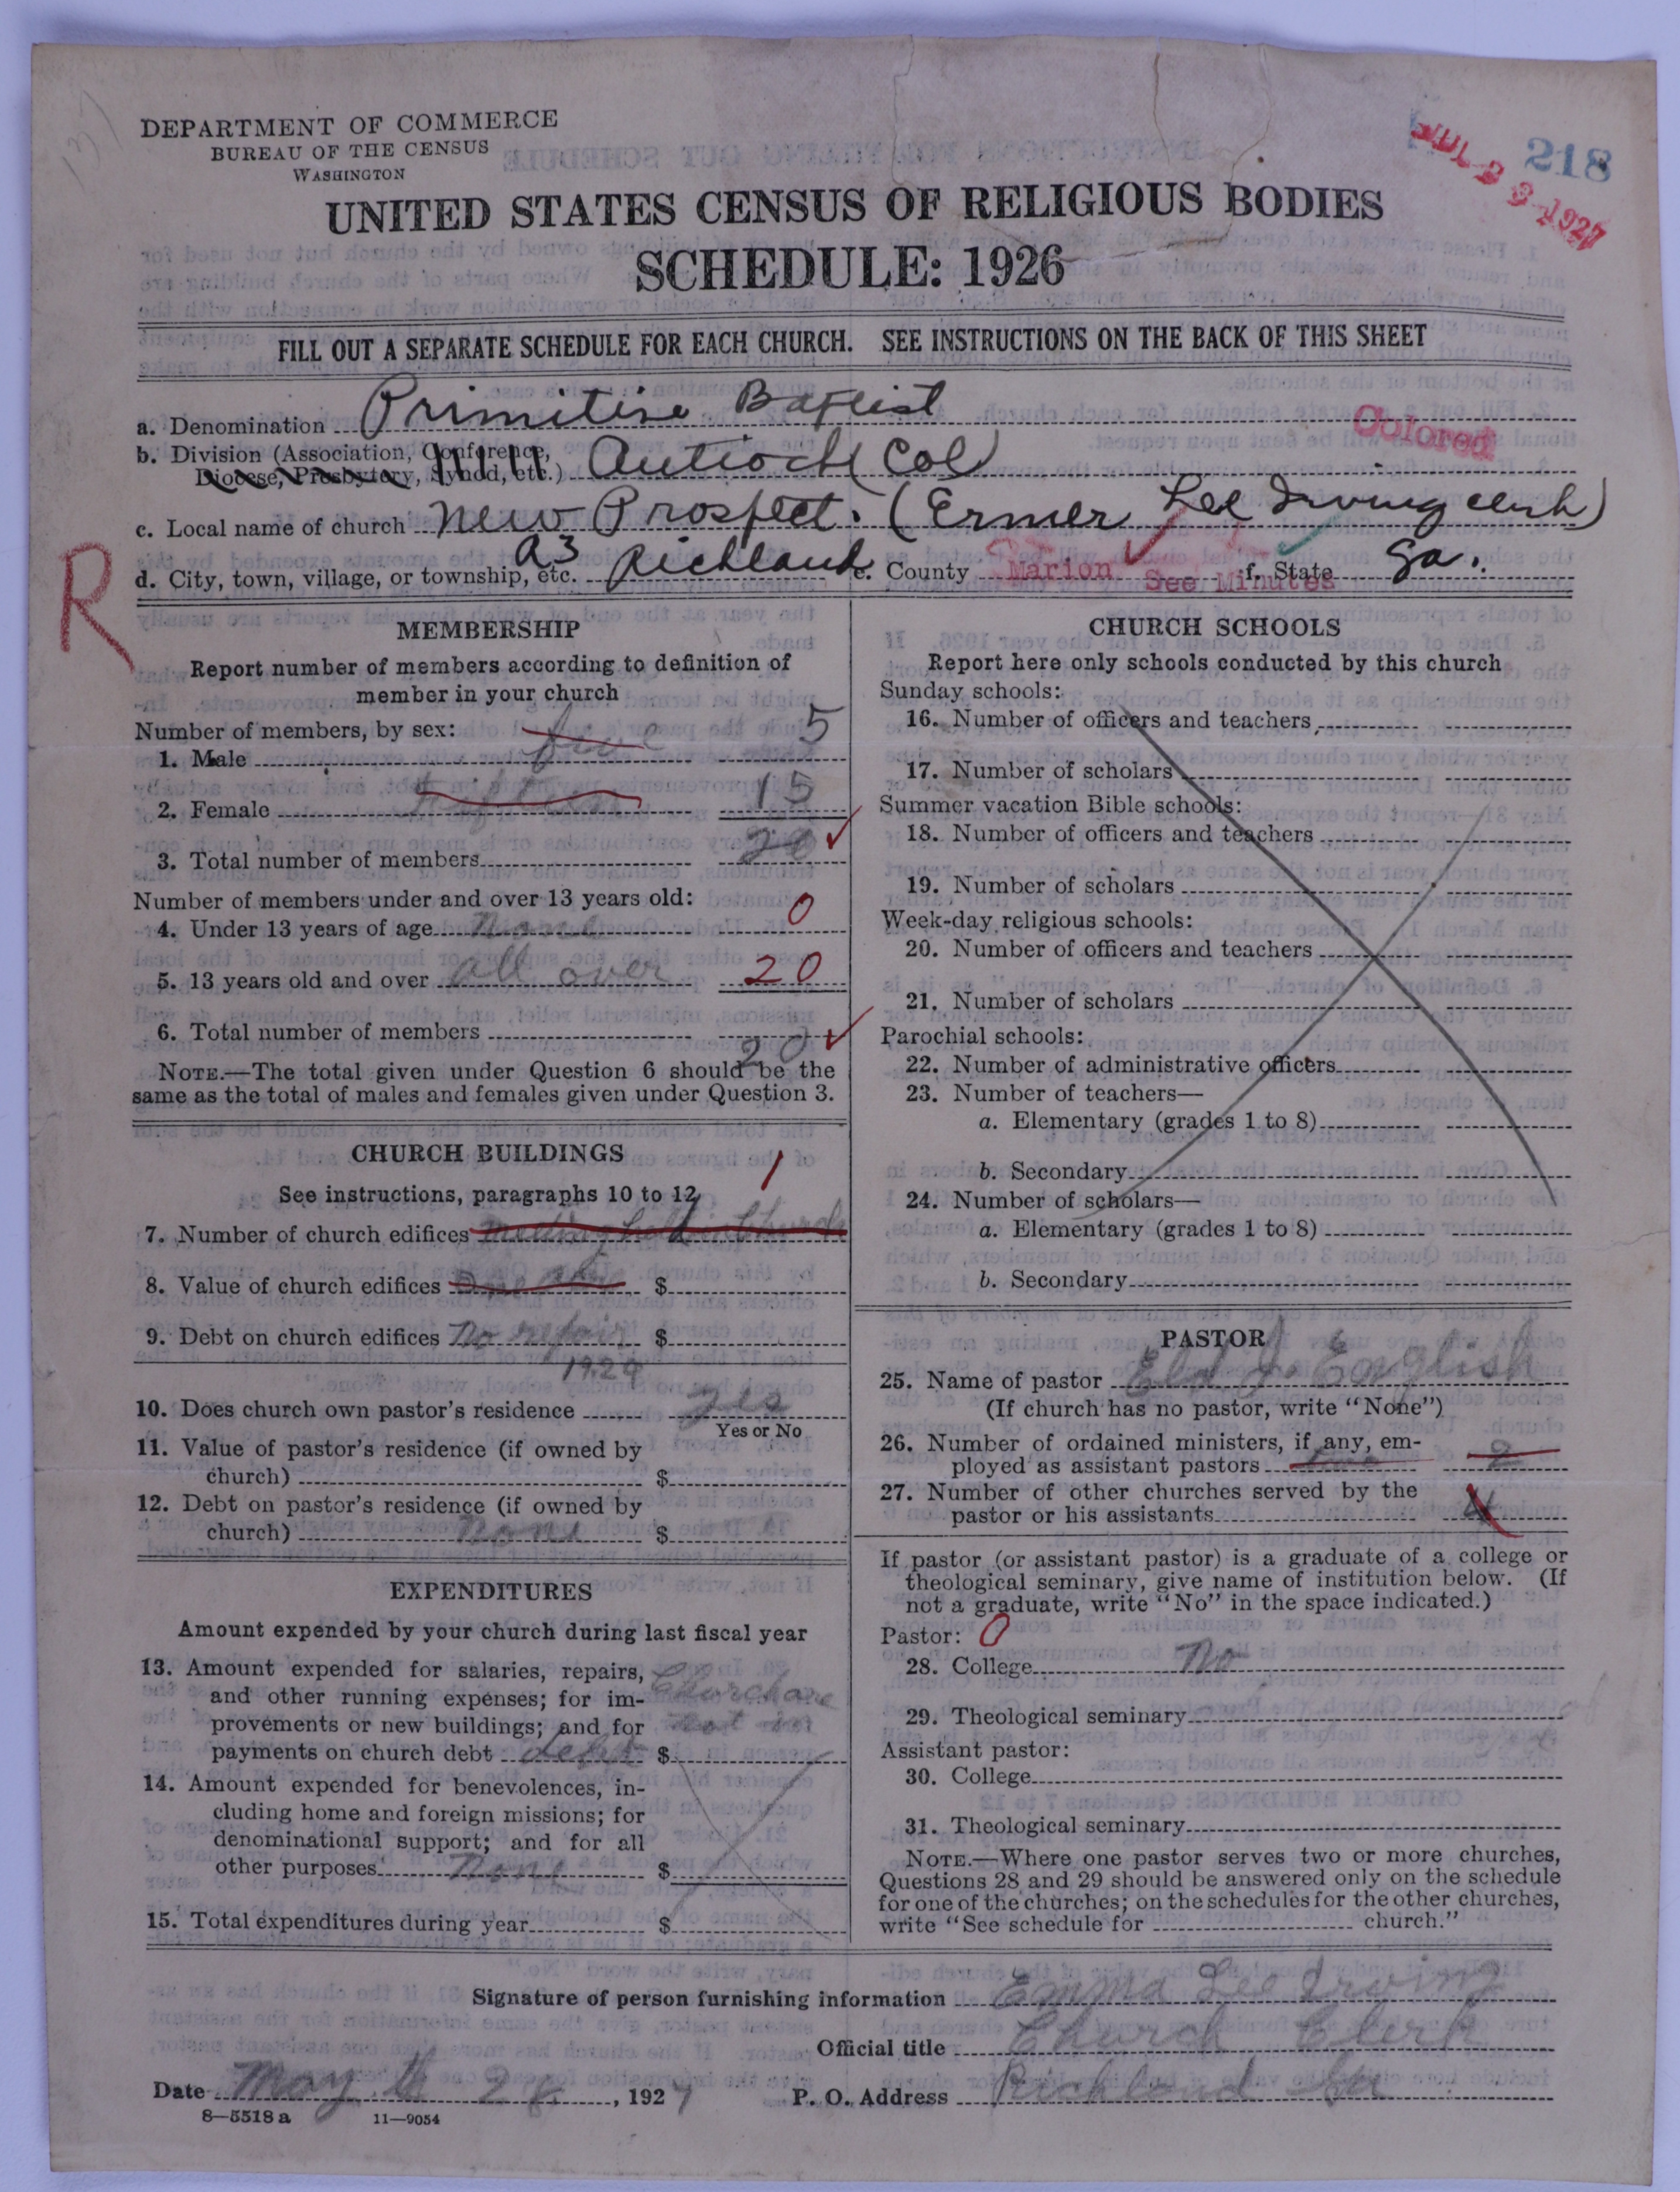 137
DEPARTMENT OF COMMERCE
BUREAU OF THE CENSUS
WASHINGTON
218
JUL 23 1927
UNITED STATES CENSUS OF RELIGIOUS BODIES
SCHEDULE: 1926
FILL OUT A SEPARATE SCHEDULE FOR EACH CHURCH. SEE INSTRUCTIONS ON THE BACK OF THIS SHEET
a. Denomination Primitive Baptist
Colored
b. Division (Association, Conference,
Diocese, Presbytery, Synod, etc.) Antioch (Col)
c. Local name of church New Prospect. (Ermer Lee Irving clerk)
d. City, town, village, or township, etc. a3 Richland e. County Marion See Minutes f. State Ga.
R
MEMBERSHIP
Report number of members according to definition of
member in your church
Number of members, by sex:
1. Male five 5
2. Female fifteen 15
3. Total number of members 20
Number of members under and over 13 years old:
4. Under 13 years of age None 0
5. 13 years old and over all over 20
6. Total number of members 20
NOTE.—The total given under Question 6 should be the
same as the total of males and females given under Question 3.
CHURCH BUILDINGS
See instructions, paragraphs 10 to 12
1
7. Number of church edifices meeting held in Church
8. Value of church edifices $
9. Debt on church edifices No repair $
1929
10. Does church own pastor's residence yes
Yes or No
11. Value of pastor's residence (if owned by
church) $
12. Debt on pastor's residence (if owned by
church) None $
EXPENDITURES
Amount expended by your church during last fiscal year
13. Amount expended for salaries, repairs, Church are
and other running expenses; for im- not in
provements or new buildings; and for
payments on church debt debt $
14. Amount expended for benevolences, in-
cluding home and foreign missions; for
denominational support; and for all
other purposes None $
15. Total expenditures during year $
CHURCH SCHOOLS
Report here only schools conducted by this church
Sunday schools:
16. Number of officers and teachers
17. Number of scholars
Summer vacation Bible schools:
18. Number of officers and teachers
19. Number of scholars
Week-day religious schools:
20. Number of officers and teachers
21. Number of scholars
Parochial schools:
22. Number of administrative officers
23. Number of teachers—
a. Elementary (grades 1 to 8)
b. Secondary
24. Number of scholars—
a. Elementary (grades 1 to 8)
b. Secondary
PASTOR
25. Name of pastor Eld J. English
(If church has no pastor, write "None")
26. Number of ordained ministers, if any, em-
ployed as assistant pastors two 2
27. Number of other churches served by the
pastor or his assistants 4
If pastor (or assistant pastor) is a graduate of a college or
theological seminary, give name of institution below. (If
not a graduate, write "No" in the space indicated.)
Pastor: 0
28. College No
29. Theological seminary
Assistant pastor:
30. College
31. Theological seminary
NOTE.—Where one pastor serves two or more churches,
Questions 28 and 29 should be answered only on the schedule
for one of the churches; on the schedules for the other churches,
write "See schedule for church."
Signature of person furnishing information Emma Lee Irving
Official title Church Clerk
Date May 28, 1927 P. O. Address Richland Ga
8—5518 a 11—9054